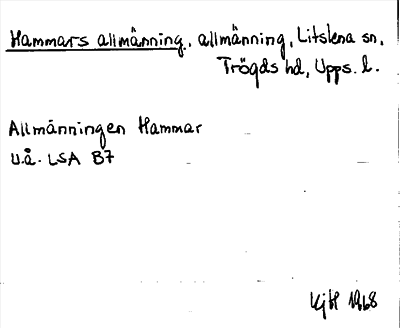 Hammars allmänning, allmänning, Litslena sn,
Trögds hd, Upps. l.
Allmänningen Hammar
u.å. LSA B7
KjH 1968